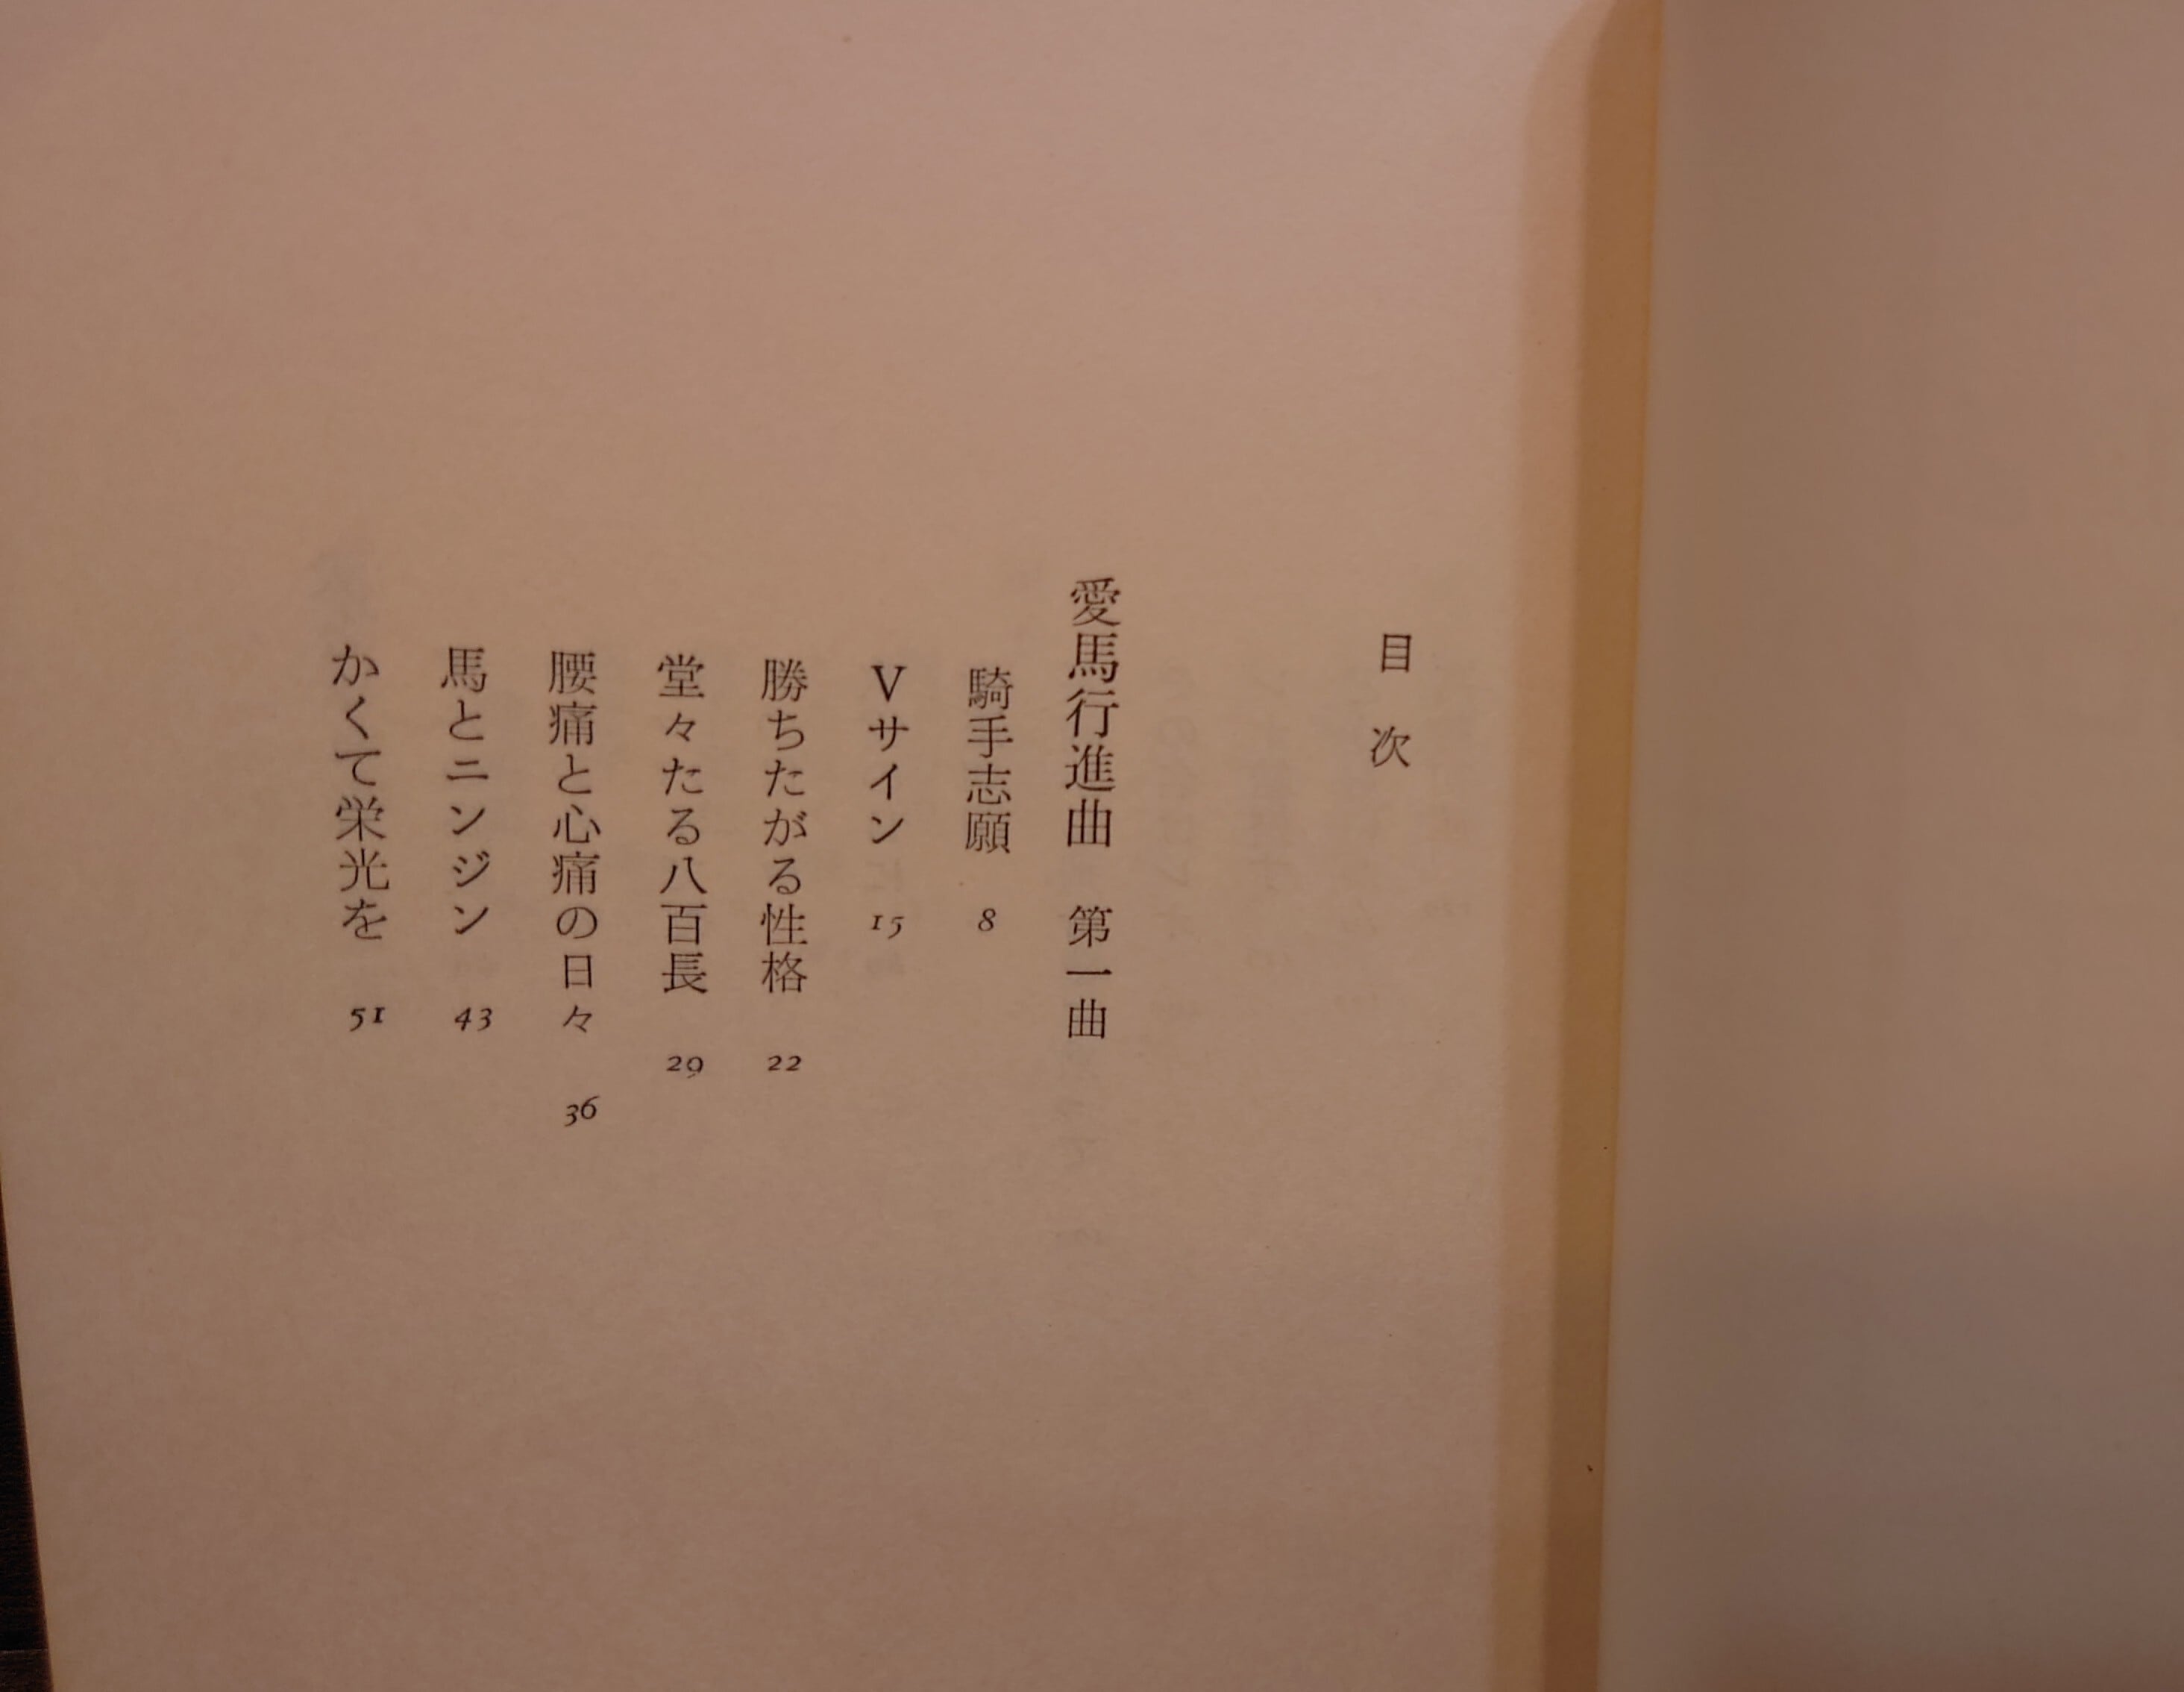 目次
愛馬行進曲　第一曲
騎手志願　8
Vサイン　15
勝ちたがる性格　22
堂々たる八百長　29
腰痛と心痛の日々　36
馬とニンジン　43
かくて栄光を　51